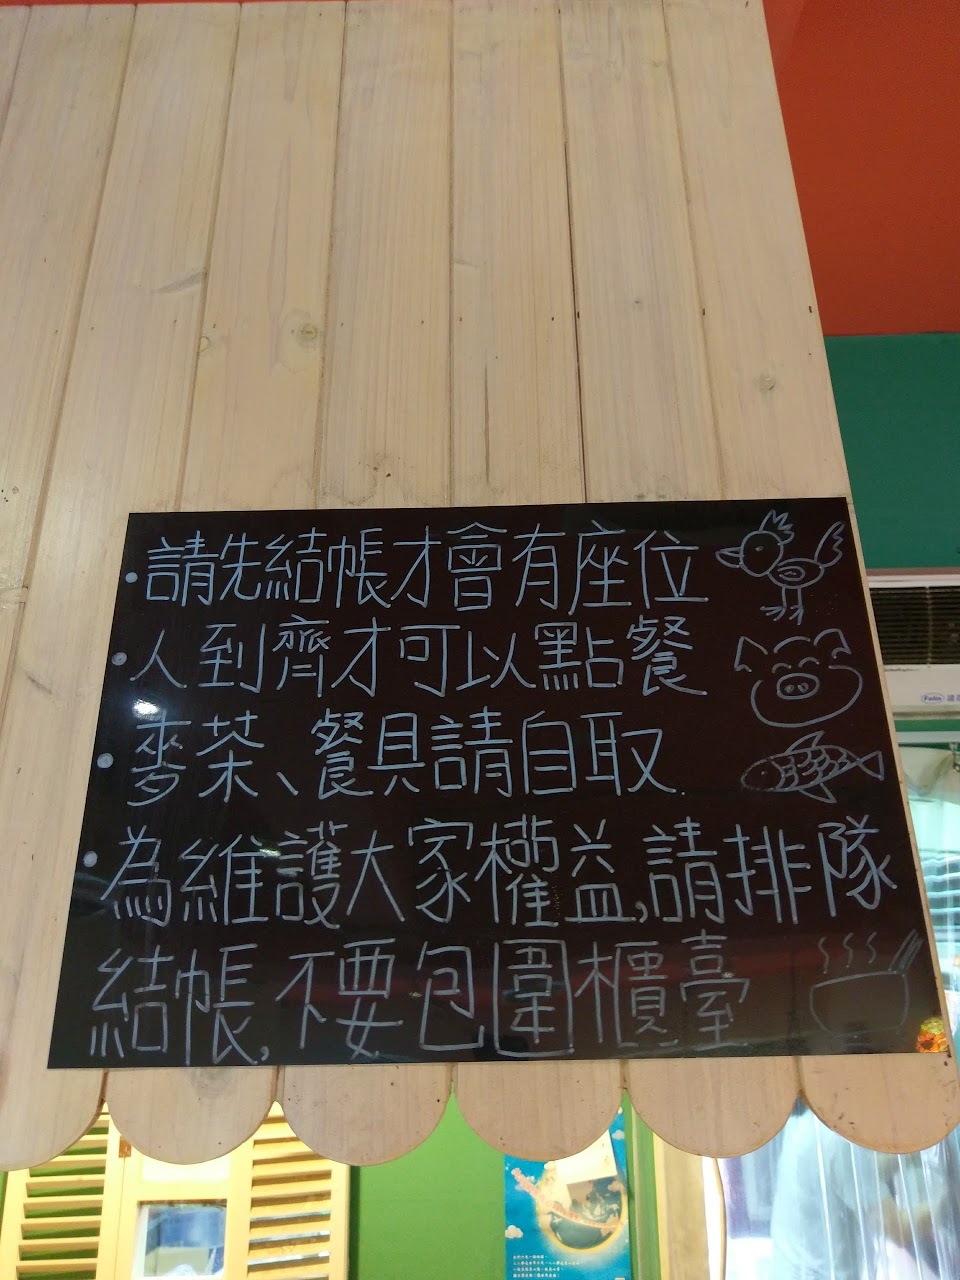 請先結帳才會有座位
人到齊才可以點餐
麥茶、餐具請自取.
為維護大家權益,請排隊
結帳,不要包圍櫃臺